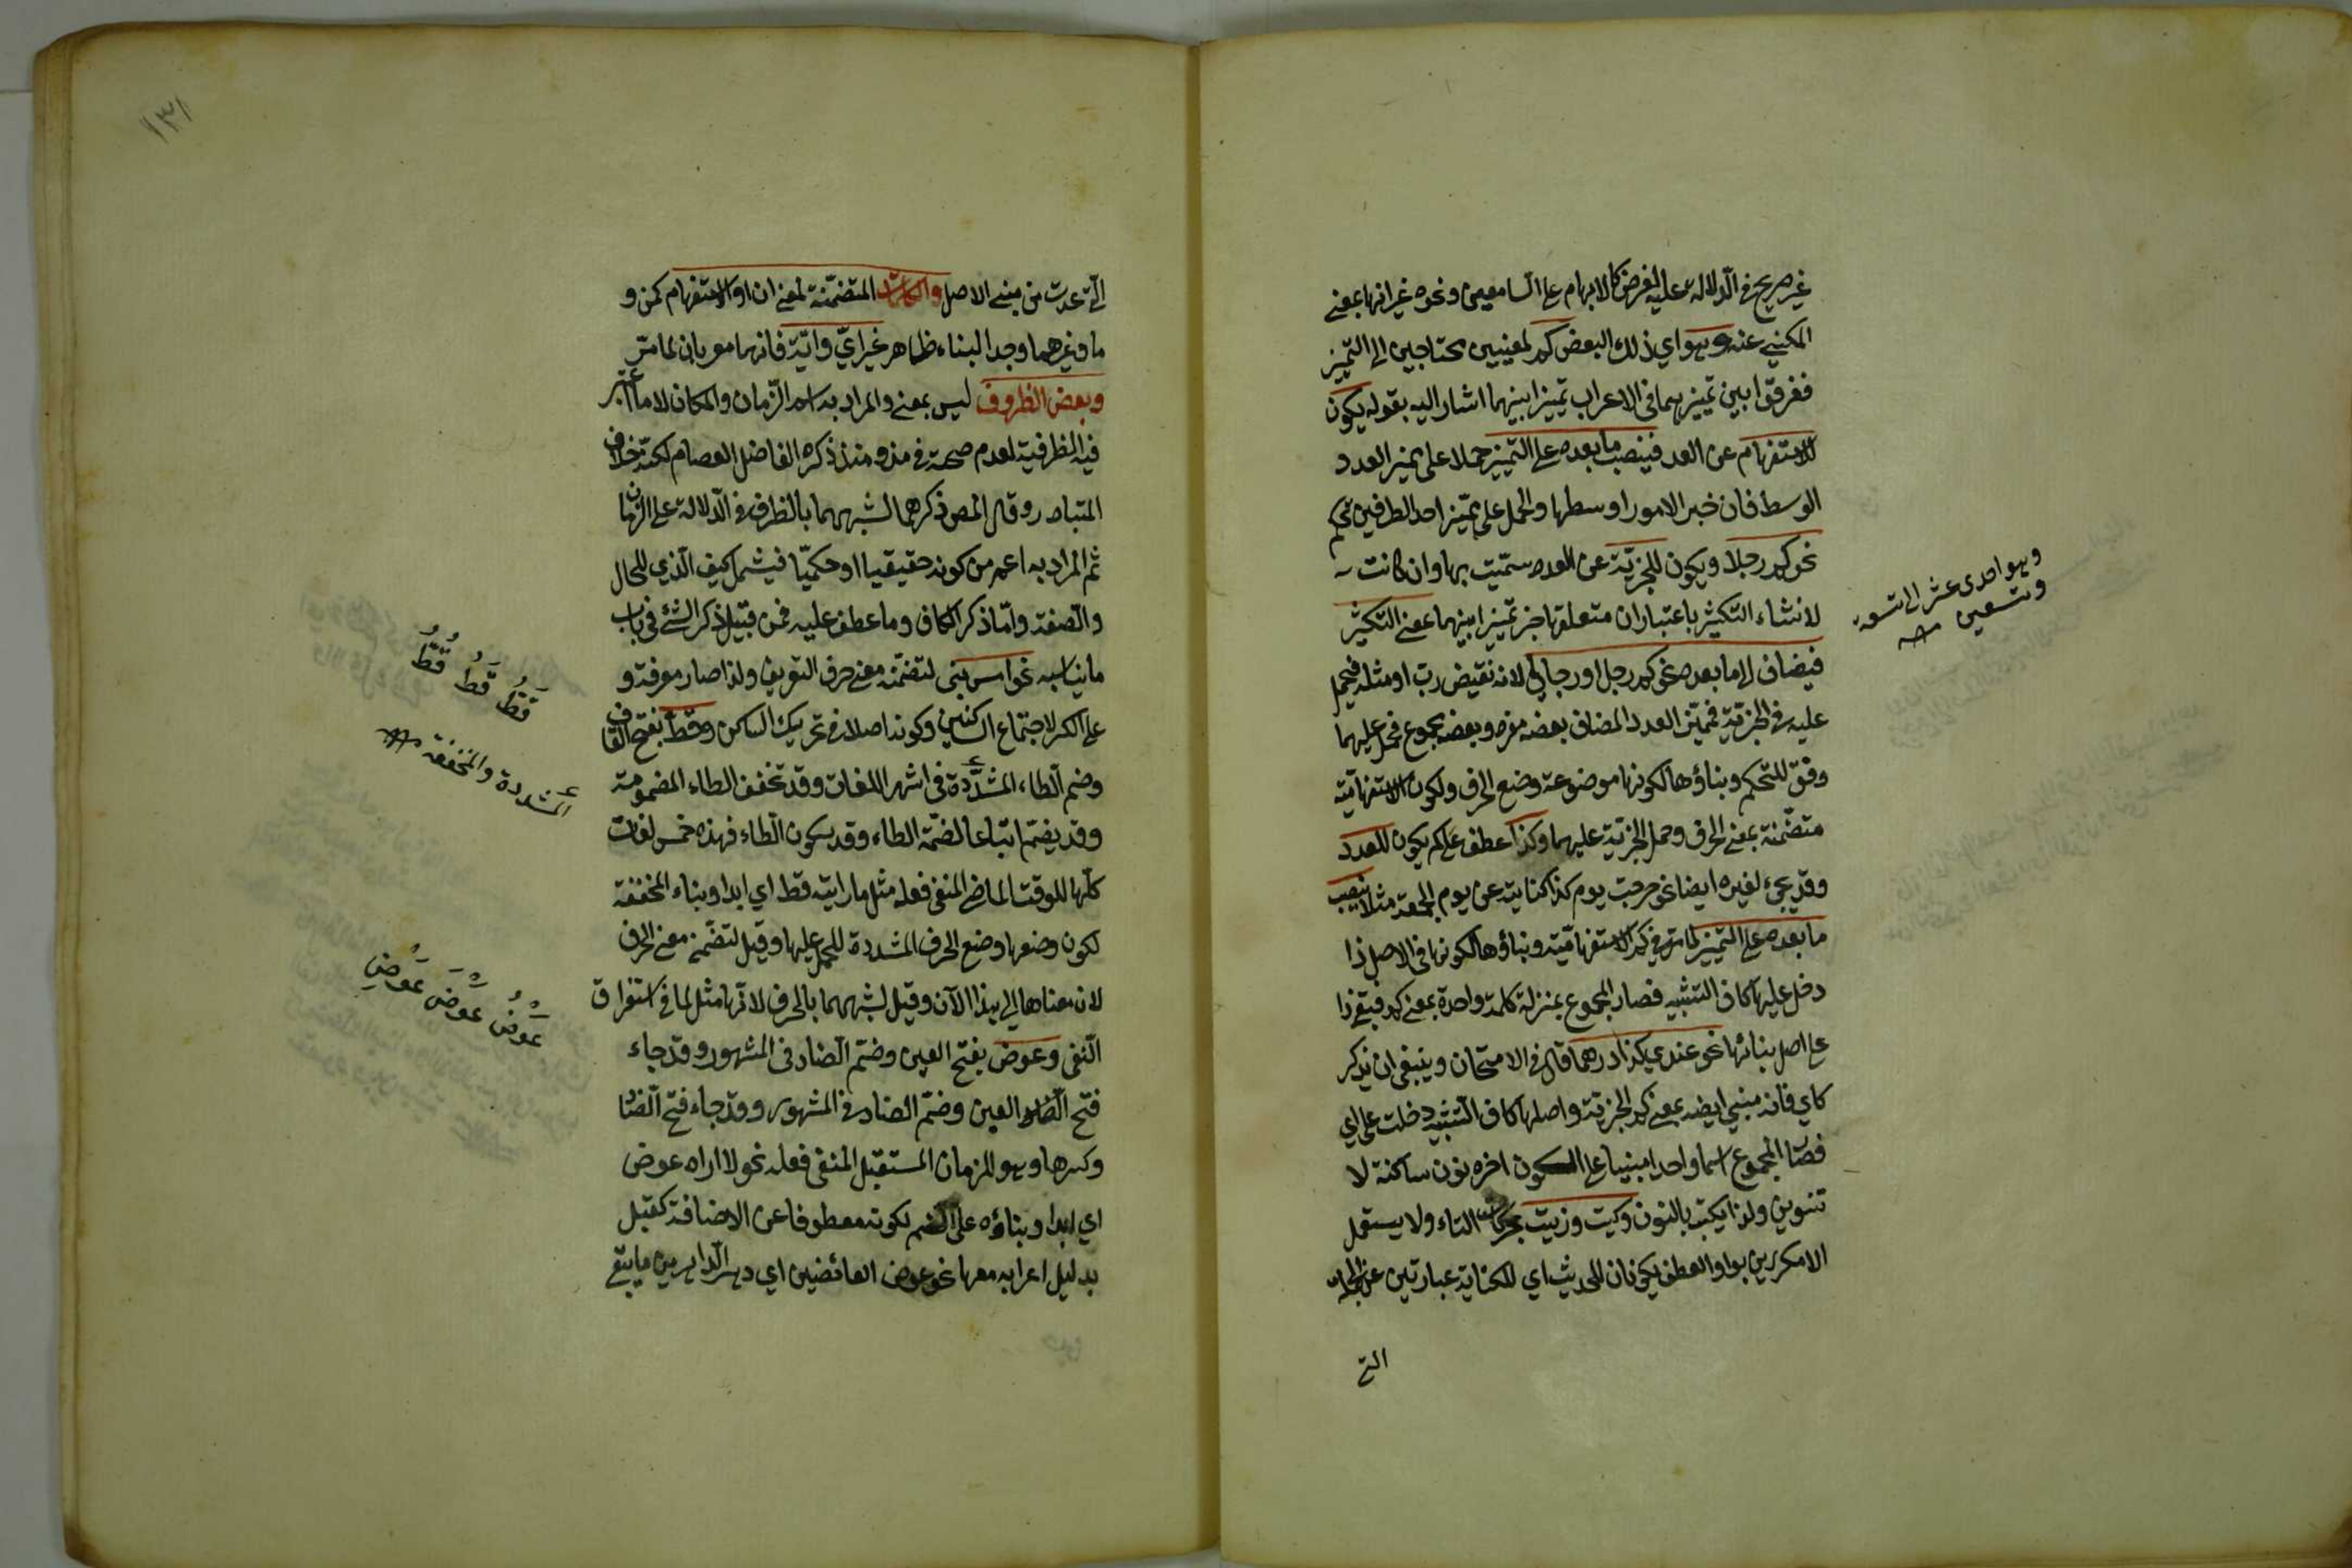 غير صريح في الدلالة عليه لغرض كالابهام على السامعين ونحوه غير انها بمعنى
المكنى عنه وهو اي ذلك البعض كم لمعنيين محتاجين الى التميز
ففرقوا بين تميزيهما في الاعراب تميزا بينهما اشار اليه بقوله يكون
للاستفهام عن العدد فينصب ما بعده على التميز حملا على مميز العدد
الوسط فان خير الامور اوسطها والحمل على مميز احد الطرفين تحكم
نحو كم رجلا ويكون للخبرية عن العدد سميت بها وان كانت
لانشاء التكثير باعتبار ان متعلقها خبر تميزا بينهما بمعنى التكثير
فيضاف الى ما بعده نحو كم رجل او رجال لانه نقيض رب او مثله فيحمل
عليه في الخبرية فمميز العدد المضاف بعضه مفرد وبعضه مجموع فحمل عليهما
وفق للتحكم وبناؤها لكونها موضوعة وضع الحرف ولكون الاستفهامية
متضمنة بمعنى الحرف وحمل الخبرية عليهما وكذا عطف على كم يكون للعدد
وقد يجيء لغيره ايضا نحو خرجت يوم كذا كناية عن يوم الجمعة مثلا ينصب
ما بعده على التميز لما مر في كم الاستفهامية وبناؤها لكونها في الاصل ذا
دخل عليها كاف التشبيه فصار المجموع بمنزلة كلمة واحدة بمعنى كم فبقي ذا
على اصل بنائها نحو عندي كذا درهما قال في الامتحان وينبغي ان يذكر
كاي فانه مبني ايضا بمعنى كم الخبرية واصلها كاف التشبيه دخلت على اي
فصار المجموع اسما واحدا مبنيا على السكون اخره نون ساكنة لا
تنوين ولذا يكتب بالنون وكيت وذيت بحركات التاء ولا يستعمل
الا مكررين بواو العطف يكونان للحديث اي للكناية عبارتين عن الجملة
التي
وهو احدى عشر الى تسعة
وتسعين
١٣١
التي عدت من مبني الاصل والكلمات المتضمنة لمعنى ان او الاستفهام كمن و
ما وغيرهما وجد البناء ظاهر غير اي واية فانهما معربان لما مر
وبعض الظروف ليس بمعنى والمراد به اسم الزمان والمكان لا ما اعتبر
فيه الظرفية لعدم صحته في مذ ومنذ ذكره الفاضل العصام لكنه خلاف
المتبادر وقال المص ذكرهما لشبههما بالظرف في الدلالة على الزمان
ثم المراد به اعم من كونه حقيقيا او حكميا فيشمل كيف الذي للحال
والصفة واما ذكر الكاف وما عطف عليه فمن قبيل ذكر الشئ في باب
ما يناسبه نحو امس بني لتضمنه معنى حرف التعريف ولذا صار معرفة و
على الكسر لاجتماع الساكنين وكونه اصلا في تحريك الساكن وقط بفتح القاف
وضم الطاء المشددة في اشهر اللغات وقد تخفف الطاء المضمومة
وقد يضم اتباعا لضمة الطاء وقد بسكون الطاء فهذه خمس لغات
كلها للوقت الماضي المنفي فعله مثل ما رايته قط اي ابدا وبناء المخففة
لكون وضعها وضع الحرف المشددة للحمل عليها وقيل لتضمنه معنى الحرف
لان معناها الى هذا الآن وقيل لشبههما بالحرف لانها مثل لما في استغراق
النفي وعوض بفتح العين وضم الضاد في المشهور وقد جاء
فتح العين وضم الضاد في المشهور وقد جاء فتح الضاد
وكسرها وهو للزمان المستقبل المنفي فعله نحو لا اراه عوض
اي ابدا وبناؤه على الضم لكونه مقطوفا عن الاضافة كقبل
بدليل اعرابه معها نحو عوض العائضين اي دهر الداهرين ما يبقى
قَطُّ قَطُ قُطُّ
المشددة والمخففة
عَوْضُ عَوْضَ عَوْضِ